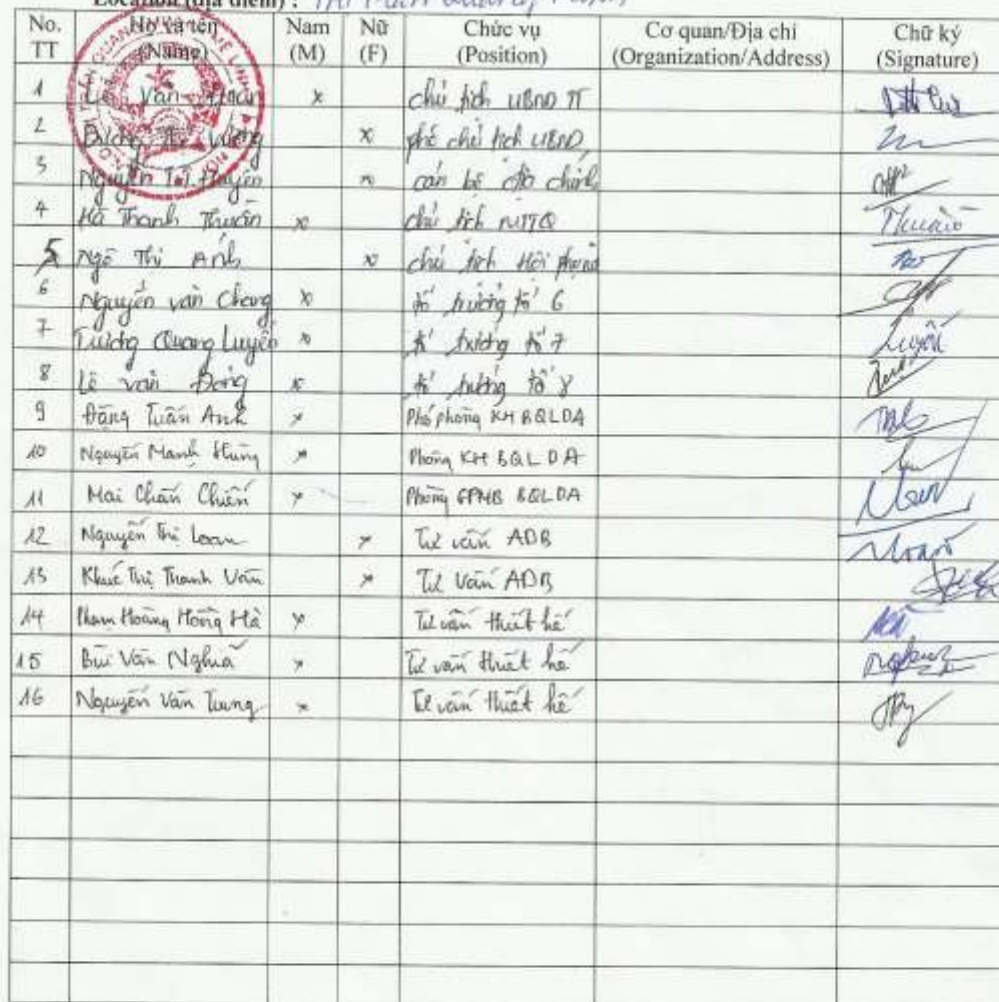 Location (địa điểm) : Thị trấn Quang Minh
No. TT Họ và tên (Name) Nam (M) Nữ (F) Chức vụ (Position) Cơ quan/Địa chỉ (Organization/Address) Chữ ký (Signature)
1 Lê Văn x chủ tịch UBND TT
2 Vương x phó chủ tịch UBND
3 Nguyễn Thị Huyền x cán bộ địa chính
4 Hà Thanh Thuận x chủ tịch MTTQ Thuận
5 Ngô Thị Ánh x chủ tịch Hội phụ nữ
6 Nguyễn văn Chang x tổ trưởng tổ 6
7 Quang Luyến x tổ trưởng tổ 7 Luyến
8 Lê văn x tổ trưởng tổ 8
9 Đặng Tuấn Anh x Phó phòng KH BQLDA
10 Nguyễn Mạnh Hùng x Phòng KH BQLDA
11 Mai Chiến x Phòng GPMB BQLDA
12 Nguyễn Thị Loan x Tư vấn ADB
13 Khúc Thị Thanh Vân x Tư vấn ADB
14 Phạm Hoàng Hồng Hà x Tư vấn thiết kế
15 Bùi Văn Nghĩa x Tư vấn thiết kế
16 Nguyễn Văn Tung x Tư vấn thiết kế